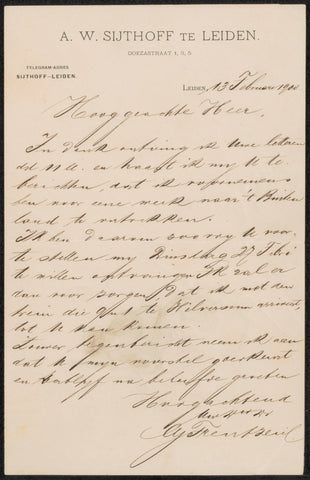 A. W. SIJTHOFF TE LEIDEN.
DOEZASTRAAT 1, 3, 5.
TELEGRAM-ADRES
SIJTHOFF-LEIDEN.
LEIDEN, 13 Februari 190
Hooggeachte Heer,
In dank ontving ik Uwe letteren
dd 11 a. en haast ik mij U te
berichten, dat ik voornemens
ben voor eene week naar 't Buiten
land te vertrekken.
Ik ben daarom zoo vrij U voor
te stellen mij Dinsdag 27 Febr.
te willen ontvangen. Ik zal er
dan voor zorgen, dat ik met den
trein die te Hilversum arriveert,
tot U kan komen.
Zonder tegenbericht neem ik aan
dat U mijn voorstel goedkeurt
en na beleefde groeten
Hoogachtend
Uw